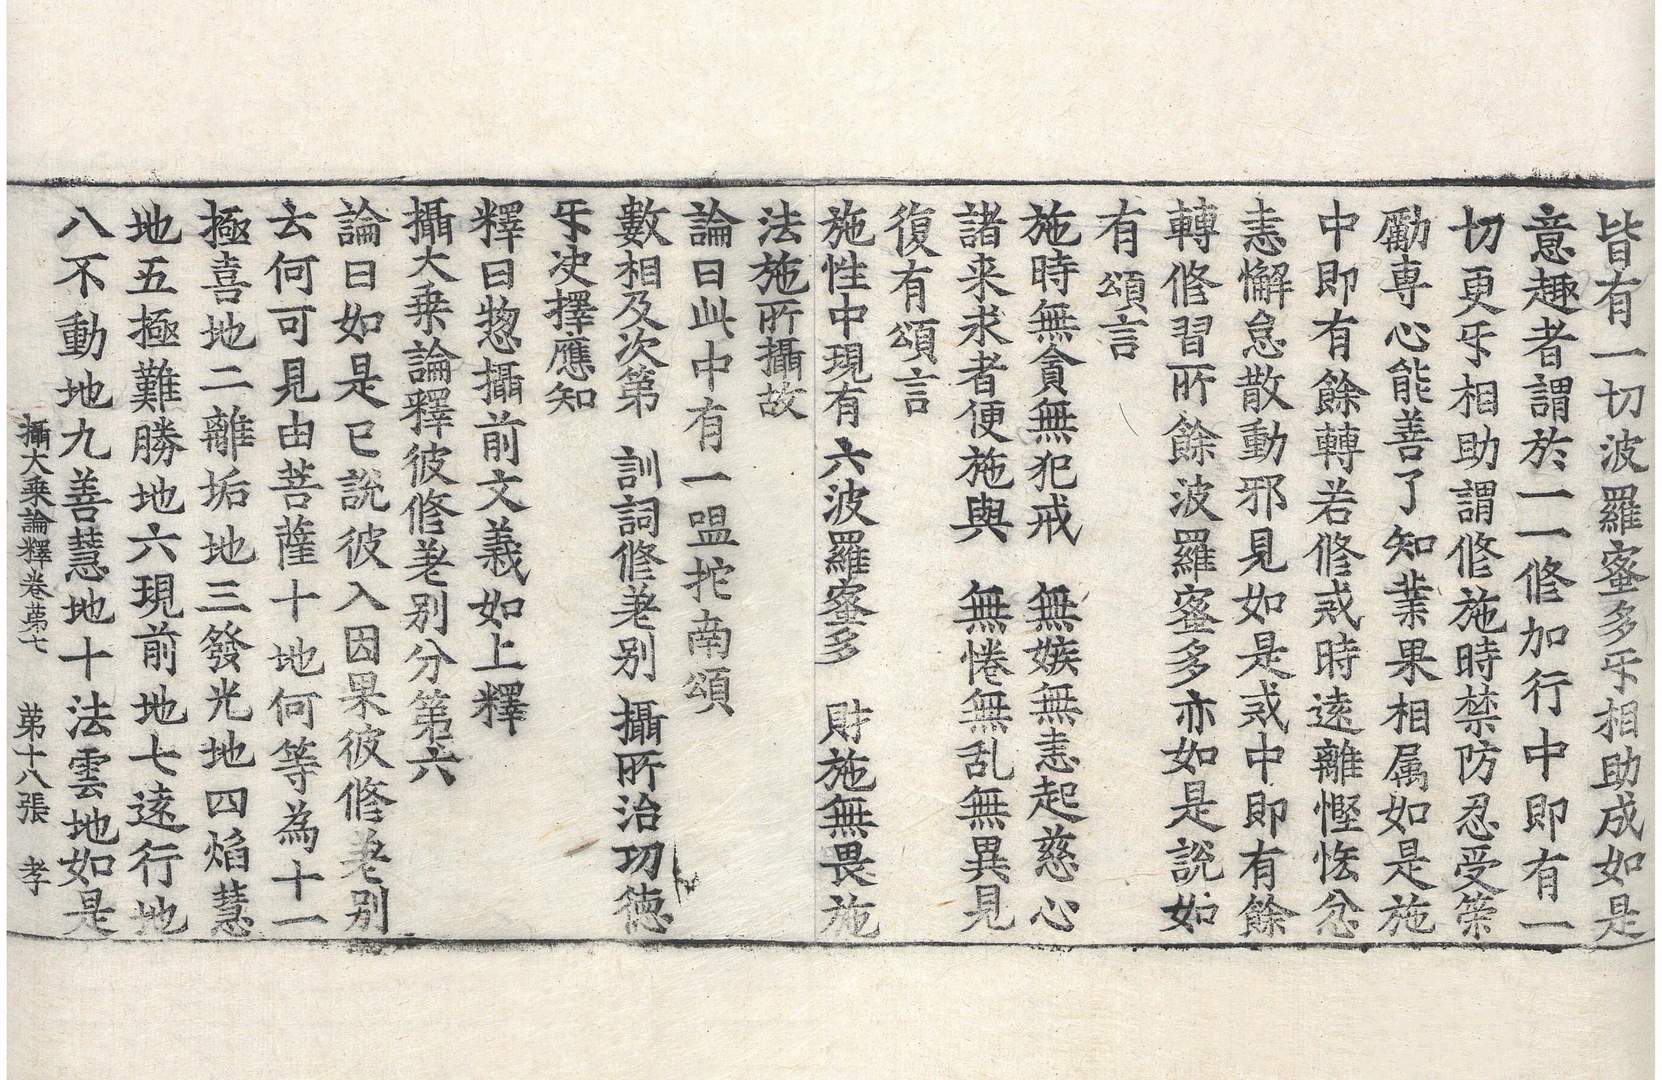 皆有一切波羅蜜多㸦相助成如是
意趣者謂於一一修加行中即有一
切更㸦相助謂修施時禁防忍受䇿
勵專心能善了知業果相属如是施
中即有餘轉若修戒時逺離慳悋忿
恚懈怠散動邪見如是戒中即有餘
轉修習所餘波羅蜜多亦如是說如
有頌言
施時無貪無犯戒　無嫉無恚起慈心
諸来求者便施與　無惓無乱無異見
復有頌言
施性中現有六波羅蜜多　財施無畏施
法施所攝故
論曰此中有一嗢拕南頌
數相及次第　訓詞修差別　攝所治功德
㸦决擇應知
釋曰惣攝前文義如上釋
攝大乗論釋彼修差別分第六
論曰如是已說彼入因果彼修差別
云何可見由菩薩十地何等為十一
極喜地二離垢地三發光地四焰慧
地五極難勝地六現前地七逺行地
八不動地九善慧地十法雲地如是
攝大乗論釋卷苐七　苐十八張　孝